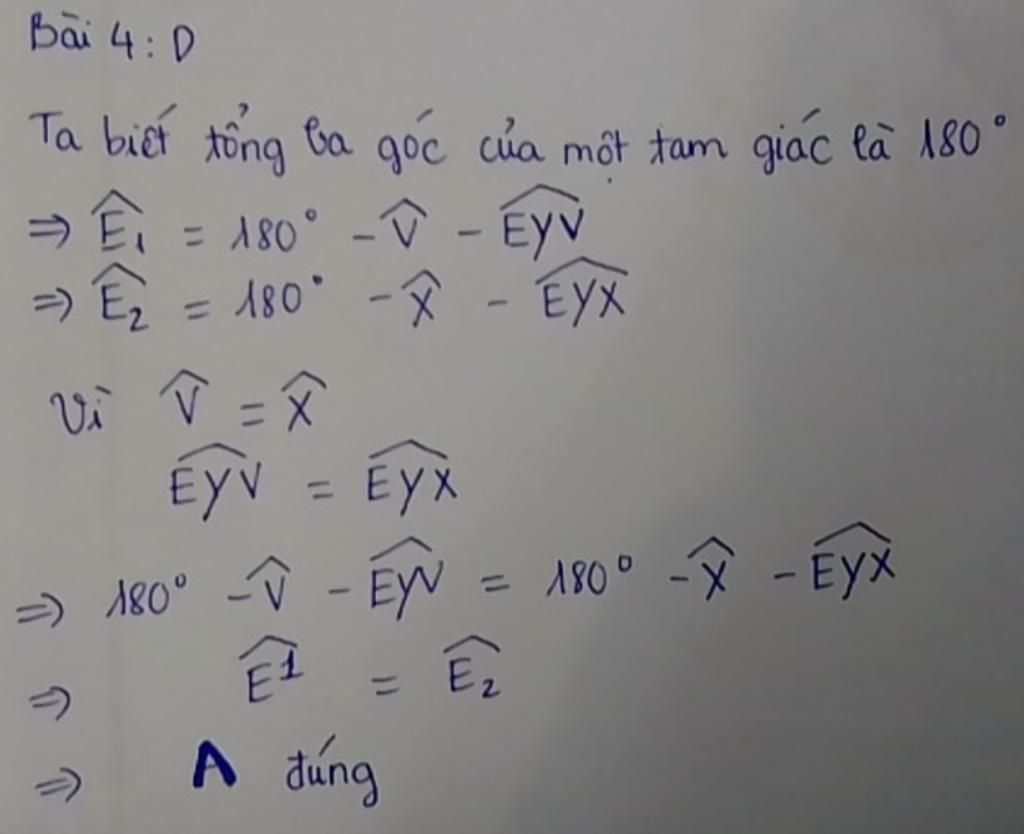 Bài 4: D
Ta biết tổng ba góc của một tam giác là 180°
⇒ Ê₁ = 180° - V̂ - \widehat{EYV}
⇒ Ê₂ = 180° - X̂ - \widehat{EYX}
Vì V̂ = X̂
\widehat{EYV} = \widehat{EYX}
⇒ 180° - V̂ - \widehat{EYV} = 180° - X̂ - \widehat{EYX}
⇒ \widehat{E1} = \widehat{E₂}
⇒ A đúng